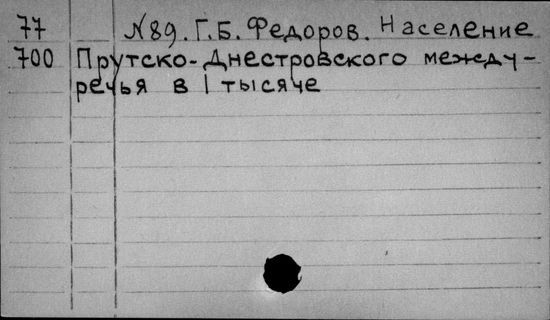 77 N89. Г.Б. Федоров. Население
700 Прутско-Днестровского между-
речья в I тысяче